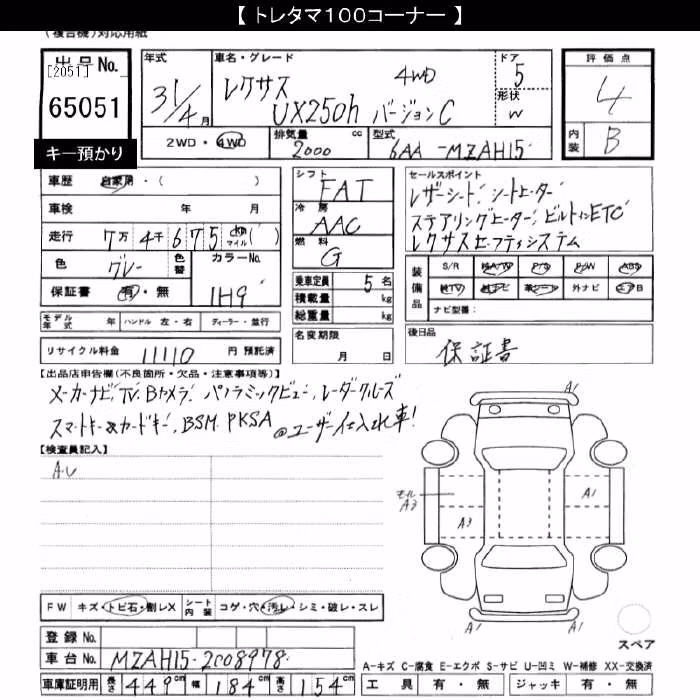 【 トレタマ100コーナー 】
(複合機)対応用紙
出品No.
[2051]
65051
キー預かり
年式
31/4月
車名・グレード
レクサス 4WD
UX250h バージョンC
ドア
5
形状
W
評価点
4
内装
B
2WD・4WD
排気量
2000
cc
型式
6AA-MZAH15
車歴 自家用・( )
車検 年 月
走行 7万4千675 km マイル ( )
色 グレー 色替 カラーNo. 1H9
保証書 有・無
モデル年式 年 ハンドル 左・右 ディーラー・並行
リサイクル料金 11110 円 預託済
シフト
FAT
冷房
AAC
燃料
G
乗車定員 5 名
積載量 kg
総重量 kg
名変期限
月 日
セールスポイント
レザーシート、シートヒーター、
ステアリングヒーター、ビルトインETC
レクサスセーフティシステム
装備品
S/R P/S P/W ABS
外ナビ エアB
ナビ型番:
後日品
保証書
【出品店申告欄(不良箇所・欠品・注意事項等)】
メーカーナビ、TV、Bカメラ、パノラミックビュー、レーダークルーズ
スマートキー&カードキー、BSM、PKSA @ユーザー仕入れ車!
【検査員記入】
A・U
A1
モル A3
A1
A3
A1
A1
スペア
FW キズ・トビ石・割レX シート内装 コゲ・穴・汚レ・シミ・破レ・スレ
登録 No.
車台 No. MZAH15-2008978
車庫証明用 長さ 449cm 幅 184cm 高さ 154cm
A-キズ C-腐食 E-エクボ S-サビ U-凹ミ W-補修 XX-交換済
工具 有・無 ジャッキ 有・無